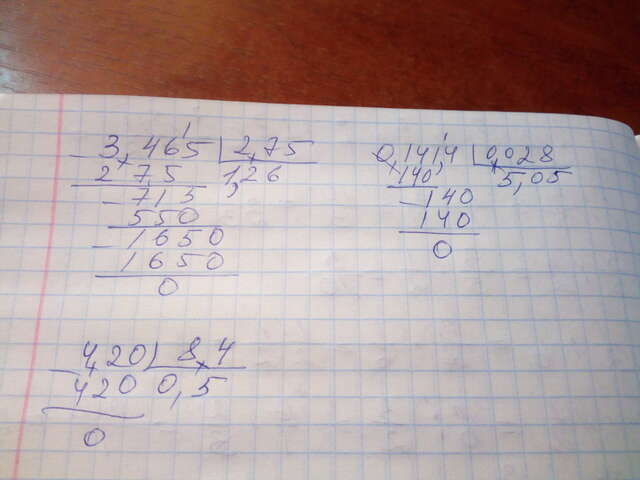 3,465 | 2,75
275 1,26
715
550
1650
1650
0
0,1414 | 0,028
140 5,05
140
140
0
4,20 | 8,4
420 0,5
0